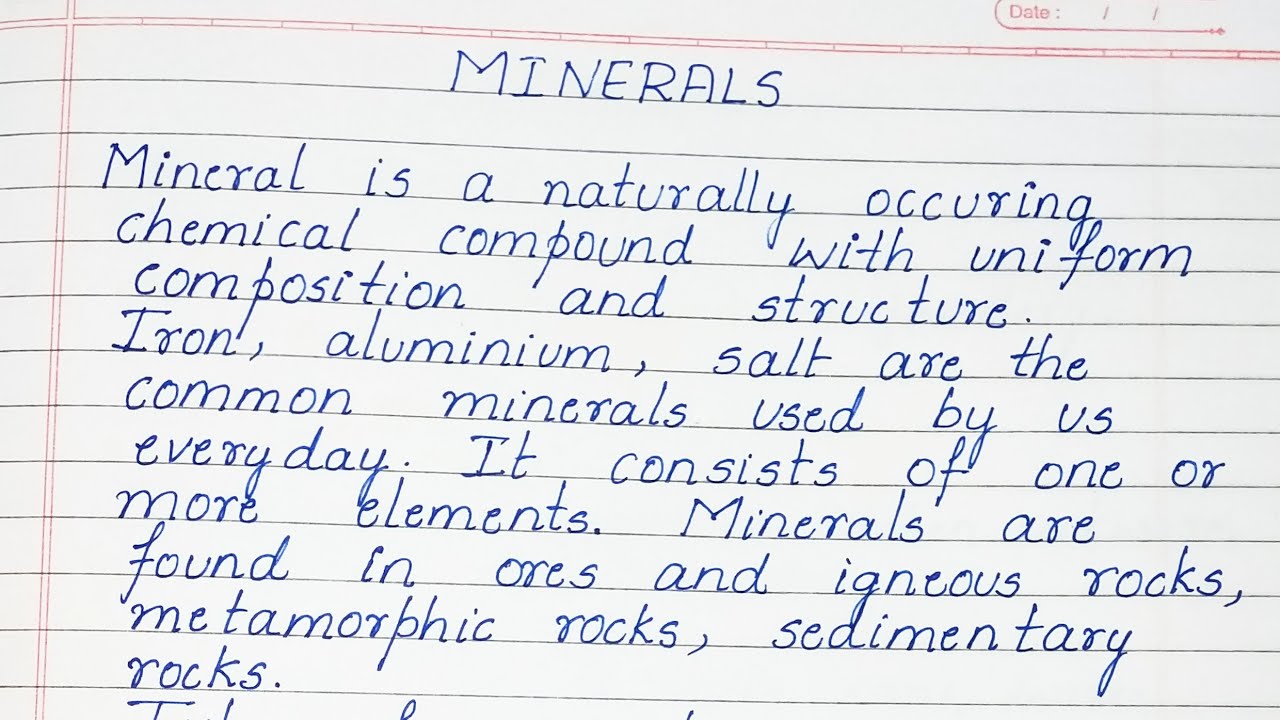 Date : / /
MINERALS
Mineral is a naturally occuring
chemical compound with uniform
composition and structure.
Iron, aluminium, salt are the
common minerals used by us
everyday. It consists of one or
more elements. Minerals are
found in ores and igneous rocks,
metamorphic rocks, sedimentary
rocks.